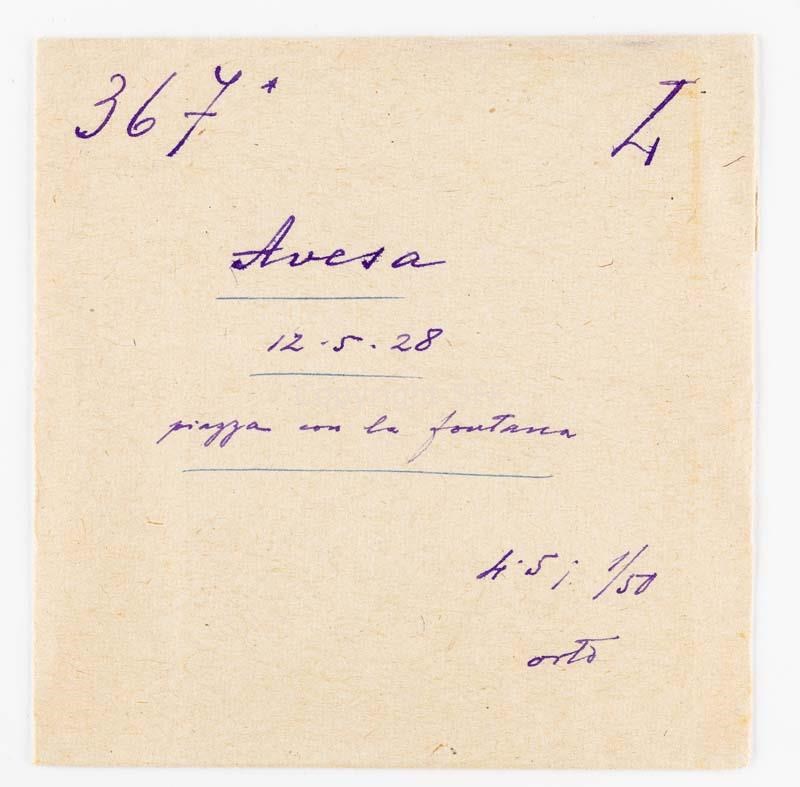 367*
Avesa
12.5.28
piazza con la fontana
4.5; 1/50
orto